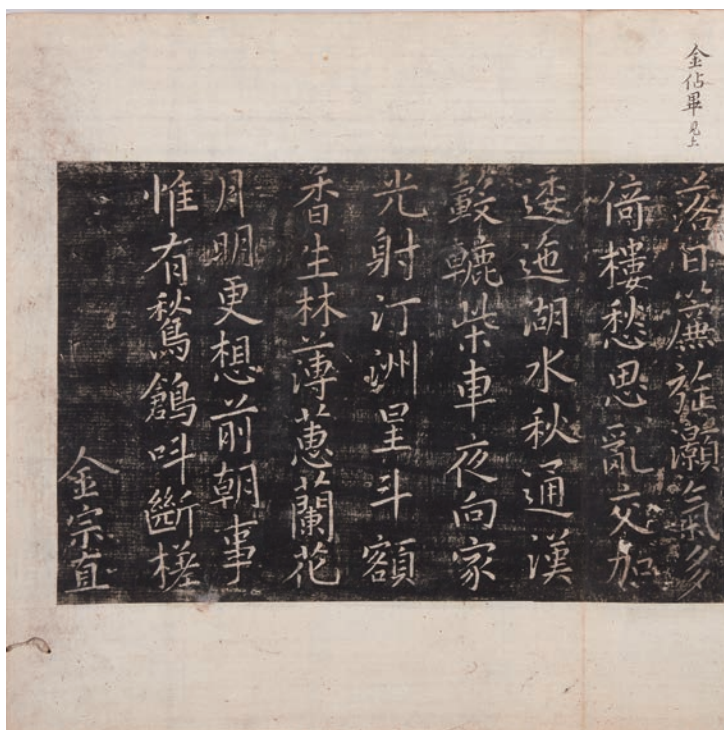 金佔畢 見上
落日簾旌灝氣多
倚樓愁思亂交加
逶迤湖水秋通漢
轂轆柴車夜向家
光射汀洲星斗額
香生林薄蕙蘭花
月明更想前朝事
惟有鶖鶬叫斷槎
金宗直